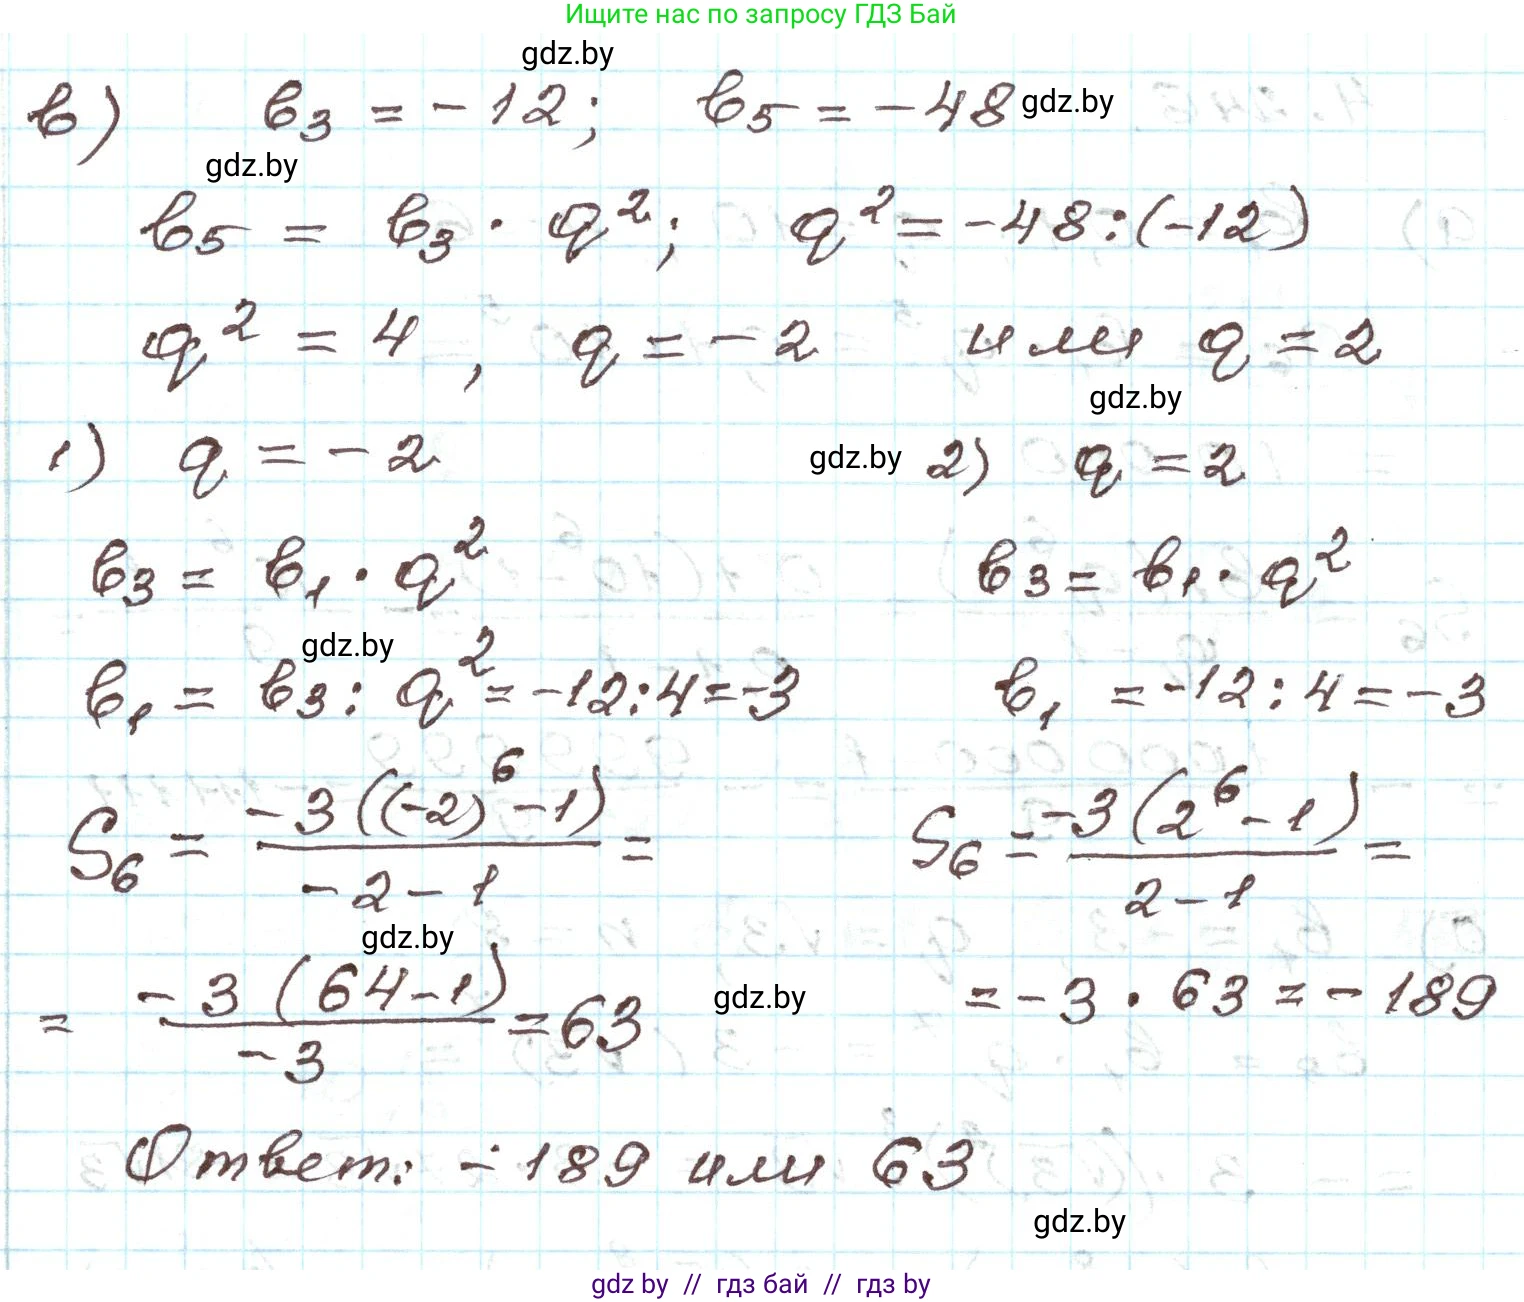 Ищите нас по запросу ГДЗ Бай
gdz.by
в) b₃ = -12; b₅ = -48 gdz.by
gdz.by
b₅ = b₃ · q²; q² = -48 : (-12)
q² = 4, q = -2 или q = 2
gdz.by
1) q = -2 gdz.by 2) q = 2
b₃ = b₁ · q² b₃ = b₁ · q²
gdz.by
b₁ = b₃ : q² = -12 : 4 = -3 b₁ = -12 : 4 = -3
S₆ = -3((-2)⁶ - 1) / -2 - 1 = S₆ = -3(2⁶ - 1) / 2 - 1 =
gdz.by
= -3(64 - 1) / -3 = 63 gdz.by = -3 · 63 = -189
Ответ: -189 или 63
gdz.by
gdz by // гдз бай // гдз by